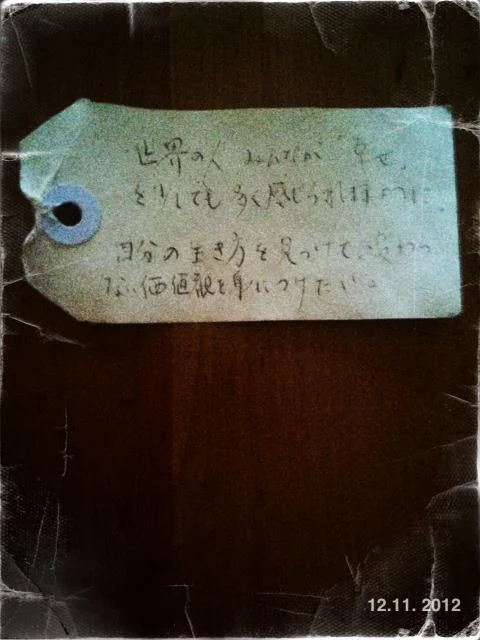 "世界の人 みんなが "幸せ"
を少しでも多く感じられ様に
自分の生き方を見つけて、変わら
ない価値観を身につけたい。
12.11. 2012